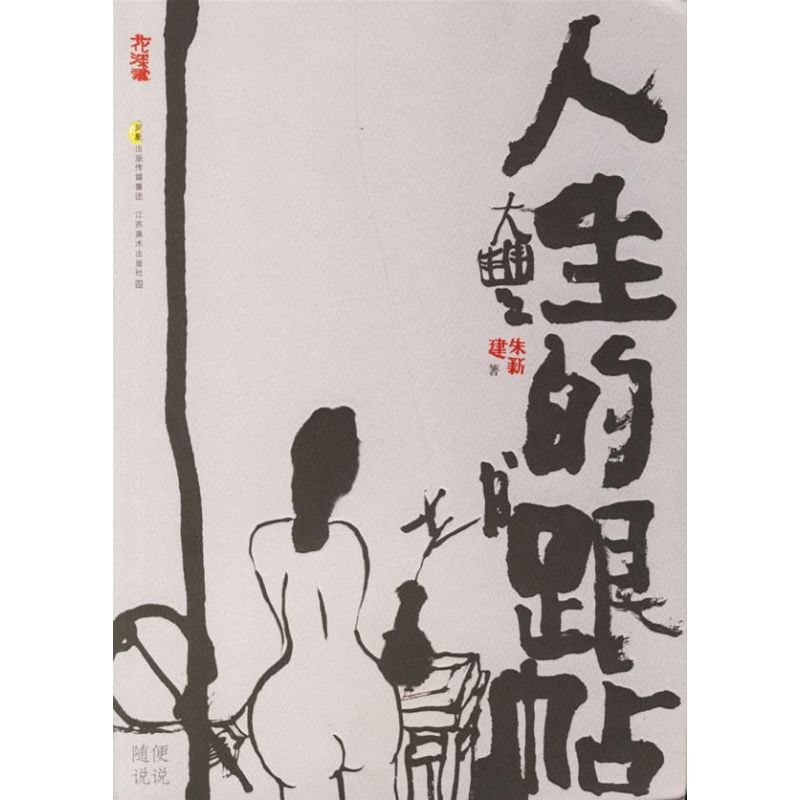 人生的跟帖
大豐
朱新建
著
凤凰出版传媒集团 江苏美术出版社
随便
说说